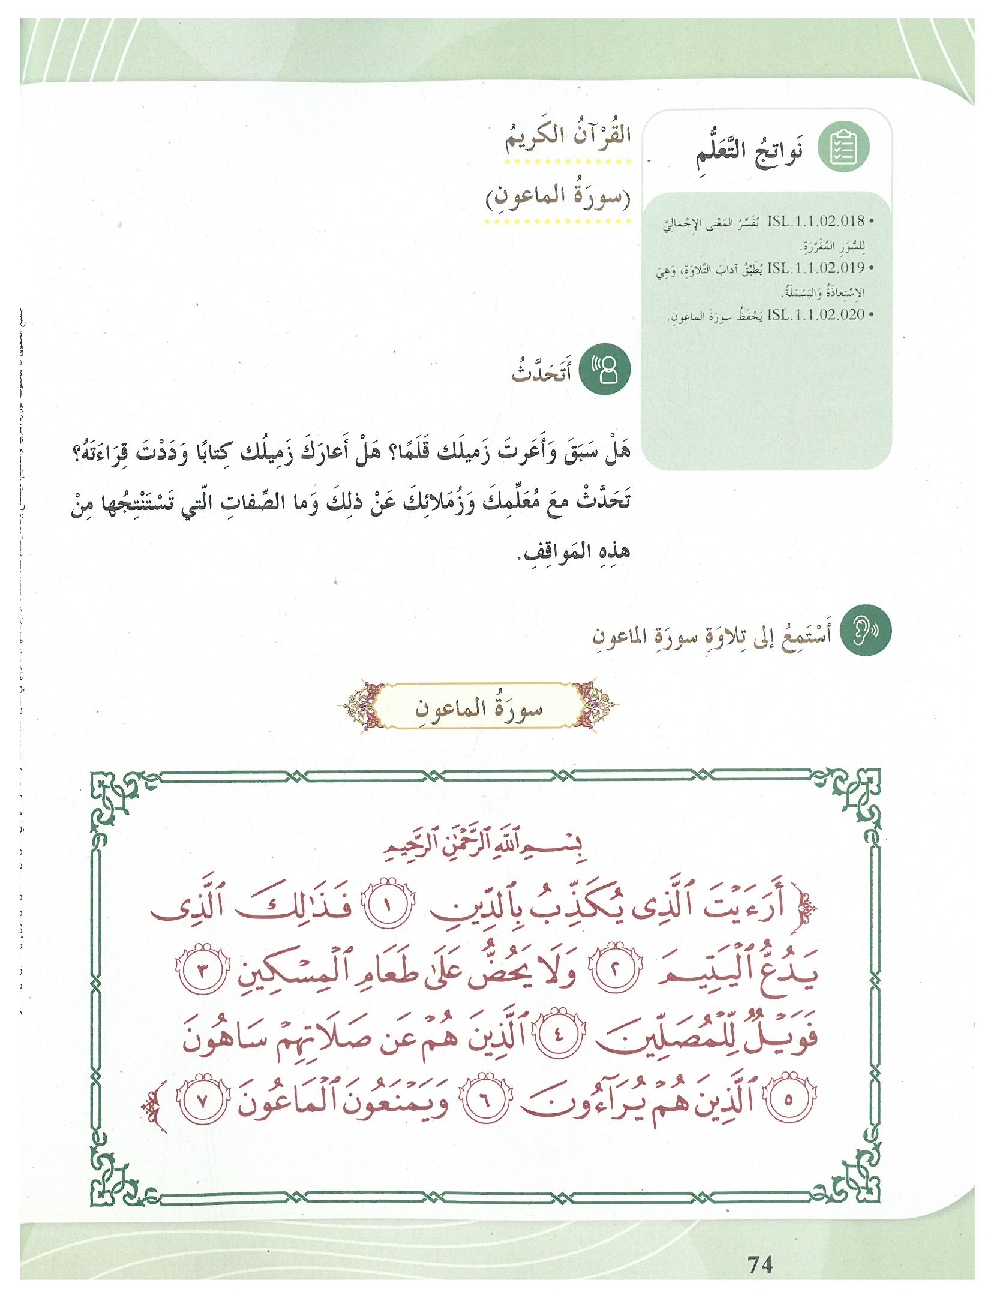 نَواتِجُ التَّعَلُّمِ
• ISL.1.1.02.018 يُفَسِّرُ المَعْنى الإِجْمالِيَّ
لِلسُّوَرِ المُقَرَّرَةِ.
• ISL.1.1.02.019 يُطَبِّقُ آدابَ التِّلاوَةِ، وَهِيَ
الاِسْتِعاذَةُ وَالبَسْمَلَةُ.
• ISL.1.1.02.020 يَحْفَظُ سورَةَ الماعونِ.
القُرْآنُ الكَريمُ
(سورَةُ الماعونِ)
أَتَحَدَّثُ
هَلْ سَبَقَ وَأَعَرتَ زَميلَك قَلَمًا؟ هَلْ أَعارَكَ زَميلُك كِتابًا وَدَدْتَ قِرَاءَتَهُ؟
تَحَدَّثْ معَ مُعَلِّمِكَ وَزُمَلائِكَ عَنْ ذلِكَ وَما الصِّفاتِ الّتي تَسْتَنْتِجُها مِنْ
هذِهِ المَواقِفِ.
أَسْتَمِعُ إلى تِلاوَةِ سورَةِ الماعونِ
سورَةُ الماعونِ
بِسْمِ ٱللَّهِ ٱلرَّحْمَٰنِ ٱلرَّحِيمِ
﴿ أَرَءَيْتَ ٱلَّذِى يُكَذِّبُ بِٱلدِّينِ ١ فَذَٰلِكَ ٱلَّذِى
يَدُعُّ ٱلْيَتِيمَ ٢ وَلَا يَحُضُّ عَلَىٰ طَعَامِ ٱلْمِسْكِينِ ٣
فَوَيْلٌ لِّلْمُصَلِّينَ ٤ ٱلَّذِينَ هُمْ عَن صَلَاتِهِمْ سَاهُونَ
٥ ٱلَّذِينَ هُمْ يُرَآءُونَ ٦ وَيَمْنَعُونَ ٱلْمَاعُونَ ٧ ﴾
74